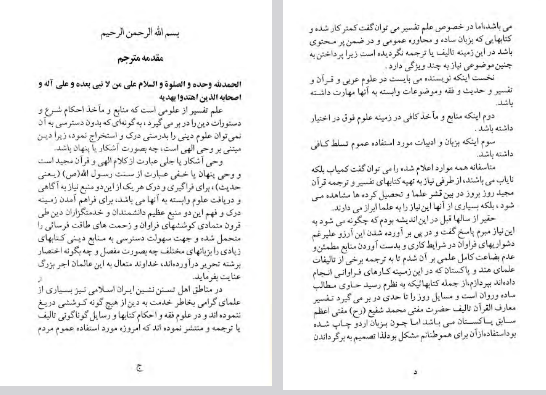 بسم الله الرحمن الرحیم
مقدمه مترجم
الحمدلله وحده و الصلوة و السلام علی من لا نبی بعده و علی آله و
اصحابه الذین اهتدوا بهدیه
علم تفسیر از علومی است که منابع و مآخذ احکام شرع و
دستورات دین را در بر می گیرد ، به گونه‌ای که بدون دسترسی به آن
نمی توان علوم دینی را بدرستی درک و استخراج نمود، زیرا دین
مبتنی بر وحی الهی است، چه بصورت آشکار یا پنهان باشد.
وحی آشکار یا جلی عبارت از کلام الهی و قرآن مجید است
و وحی پنهان یا خفی عبارت از سنت رسول الله(ص) (یعنی
حدیث)، برای فراگیری و درک هر یک از این دو منبع نیاز به آگاهی
و دریافت علوم وابسته به آنها، می باشد، برای فراهم آمدن زمینه
درک و فهم این دو منبع عظیم دانشمندان و خدمتگزاران دین طی
قرون متمادی کوششهای فراوان و زحمت های طاقت فرسائی را
متحمل شده و جهت سهولت دسترسی به منابع دینی کتابهای
زیادی را بزبانهای مختلف چه بصورت مفصل و چه بگونه اختصار
برشته تحریر درآورده‌اند، خداوند متعال به این عالمان اجر بزرگ
عنایت بفرماید.
در مناطق اهل تسنن نشین ایران اسلامی نیز بسیاری از
علمای گرامی بخاطر خدمت به دین از هیچ گونه کوششی دریغ
ننموده اند و در علوم فقه و احکام کتابها و رسایل گوناگونی تالیف
یا ترجمه و منتشر نموده اند که امروزه مورد استفاده عموم مردم
ج
می باشد، اما در خصوص علم تفسیر می توان گفت کمتر کار شده و
کتابهایی که بزبان ساده و محاوره عمومی و در ضمن پر محتوی
باشد در این زمینه تالیف یا ترجمه نگردیده است زیرا پرداختن به
چنین موضوعی نیاز به چند ویژگی دارد .
نخست اینکه نویسنده می بایست در علوم عربی و قرآن و
تفسیر و حدیث و فقه و موضوعات وابسته به آنها مهارت داشته
باشد.
دوم اینکه منابع و مآخذ کافی در زمینه علوم فوق در اختیار
داشته باشد .
سوم اینکه بزبان و ادبیات مورد استفاده عموم تسلط کافی
داشته باشد.
متاسفانه همه موارد اعلام شده را می توان گفت کمیاب بلکه
نایاب می باشند، از طرفی نیاز به تهیه کتابهای تفسیر و ترجمه قرآن
مجید روز بروز در بین قشر علما و تحصیل کرده ها مشاهده می
شود ، بلکه بسیاری از آنها این نیاز را به علما ابراز می دارند.
حقیر از سالها قبل در این اندیشه بودم که چگونه می شود به
این نیاز مبرم پاسخ گفت و در پی بر آورده شدن این آرزو علیرغم
دشواریهای فراوان در شرایط کاری و بدست آوردن منابع مطمئن و
عدم بضاعت کامل علمی بر آن شدم تا به ترجمه برخی از تالیفات
علمای هند و پاکستان که در این زمینه کارهای فراوانی انجام
داده‌اند بپردازم، از جمله کتابهائیکه به نظرم رسید حاوی مطالب
ساده وروان است و مسایل روز را تا حدی در بر می گیرد تفسیر
معارف القرآن تالیف حضرت مفتی محمد شفیع (رح) مفتی اعظم
سابق پاکستان می باشد اما چون بزبان اردو چاپ شده
بود استفاده از آن برای هموطنانم مشکل بود لذا تصمیم به برگرداندن
د